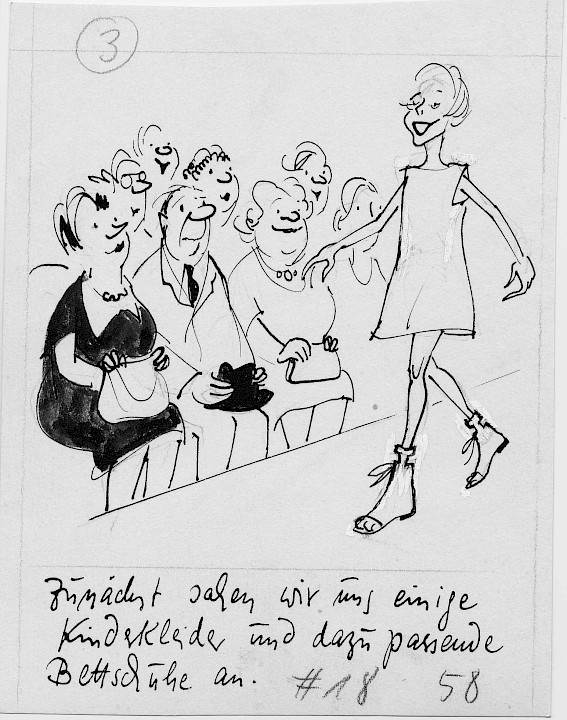 3
Zunächst sahen wir uns einige
Kinderkleider und dazu passende
Bettschuhe an. #18 58